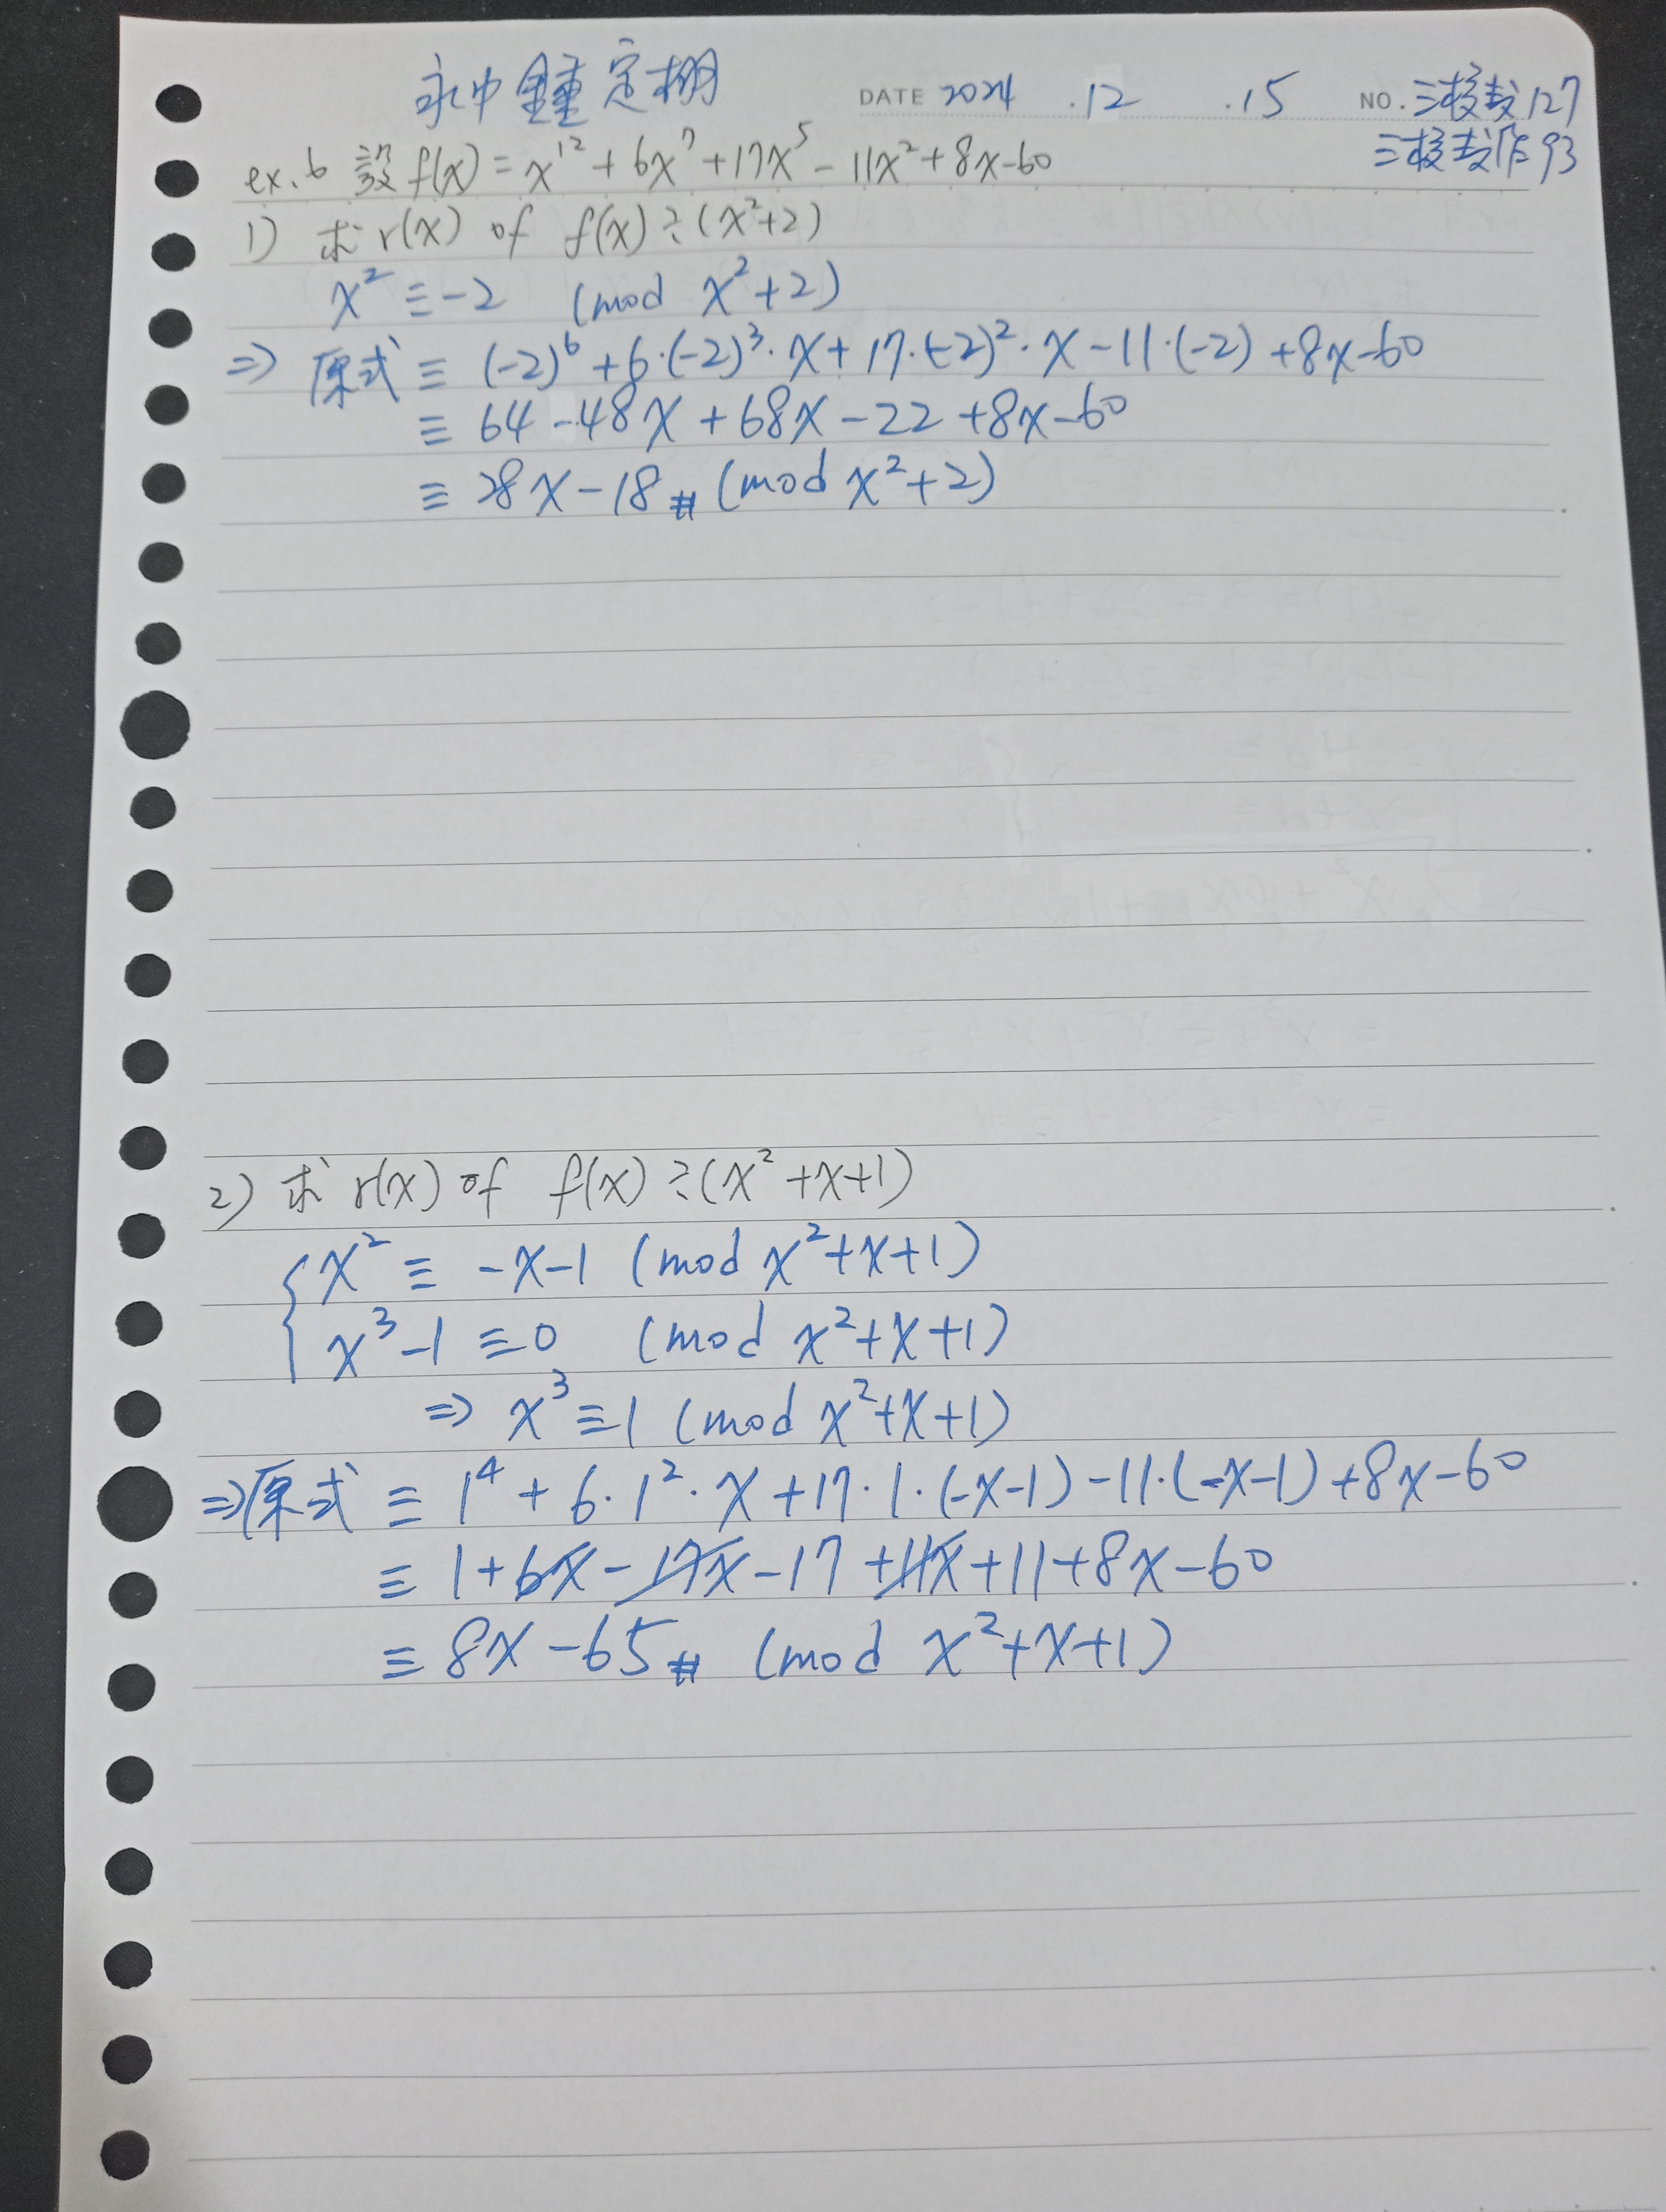 永中 鍾定栩
DATE 2024 .12 .15 NO. 三校表127
三校表作93
ex.6 設 f(x) = x¹² + 6x⁷ + 17x⁵ - 11x² + 8x - 60
1) 求 r(x) of f(x) ÷ (x²+2)
x² ≡ -2 (mod x²+2)
⇒ 原式 ≡ (-2)⁶ + 6·(-2)³·x + 17·(-2)²·x - 11·(-2) + 8x - 60
≡ 64 - 48x + 68x - 22 + 8x - 60
≡ 28x - 18 # (mod x²+2)
2) 求 r(x) of f(x) ÷ (x²+x+1)
{ x² ≡ -x-1 (mod x²+x+1)
x³-1 ≡ 0 (mod x²+x+1)
⇒ x³ ≡ 1 (mod x²+x+1)
⇒ 原式 ≡ 1⁴ + 6·1²·x + 17·1·(-x-1) - 11·(-x-1) + 8x - 60
≡ 1 + 6x - 17x - 17 + 11x + 11 + 8x - 60
≡ 8x - 65 # (mod x²+x+1)